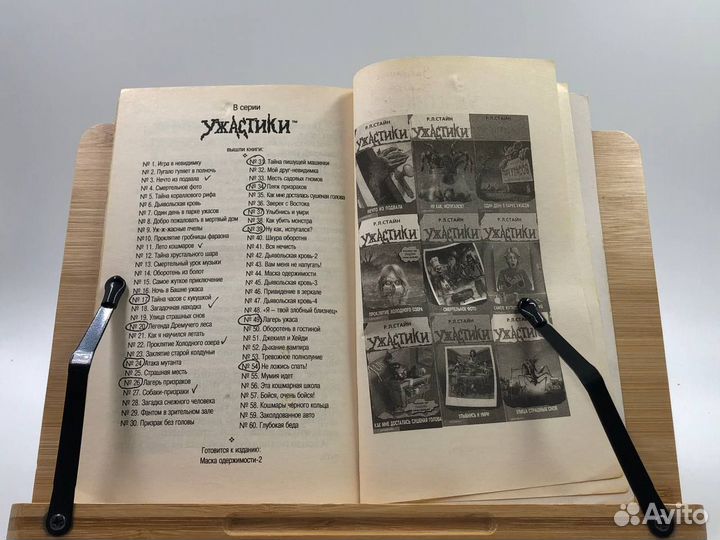 В серии
УЖАСТИКИ™
вышли книги:
№ 1. Игра в невидимку
№ 2. Пугало гуляет в полночь
№ 3. Нечто из подвала
№ 4. Смертельное фото
№ 5. Тайна кораллового рифа
№ 6. Дьявольская кровь
№ 7. Один день в парке ужасов
№ 8. Добро пожаловать в мертвый дом
№ 9. Уж-ж-жасные пчелы
№ 10. Проклятие гробницы фараона
№ 11. Лето кошмаров
№ 12. Тайна хрустального шара
№ 13. Смертельный урок музыки
№ 14. Оборотень из болот
№ 15. Самое жуткое приключение
№ 16. Ночь в Башне ужаса
№ 17. Тайна часов с кукушкой
№ 18. Загадочная находка
№ 19. Улица страшных снов
№ 20. Легенда Дремучего леса
№ 21. Как я научился летать
№ 22. Проклятие Холодного озера
№ 23. Заклятие старой колдуньи
№ 24. Атака мутанта
№ 25. Страшная месть
№ 26. Лагерь призраков
№ 27. Собаки-призраки
№ 28. Загадка снежного человека
№ 29. Фантом в зрительном зале
№ 30. Призрак без головы
№ 31. Тайна пишущей машинки
№ 32. Мой друг-невидимка
№ 33. Месть садовых гномов
№ 34. Пляж призраков
№ 35. Как мне досталась сушеная голова
№ 36. Зверег с Востока
№ 37. Улыбнись и умри
№ 38. Как убить монстра
№ 39. Ну как, испугался?
№ 40. Шкура оборотня
№ 41. Вся нечисть
№ 42. Дьявольская кровь-2
№ 43. Вам меня не напугать!
№ 44. Маска одержимости
№ 45. Дьявольская кровь-3
№ 46. Привидение в зеркале
№ 47. Дьявольская кровь-4
№ 48. «Я – твой злобный близнец»
№ 49. Лагерь ужаса
№ 50. Оборотень в гостиной
№ 51. Джекилл и Хейди
№ 52. Дыхание вампира
№ 53. Тревожное полнолуние
№ 54. Не ложись спать!
№ 55. Мумия идет
№ 56. Эта кошмарная школа
№ 57. Бойся, очень бойся!
№ 58. Кошмары чёрного кольца
№ 59. Заколдованное авто
№ 60. Глубокая беда
Готовится к изданию:
Маска одержимости-2
Р.Л.СТАЙН
УЖАСТИКИ
НЕЧТО ИЗ ПОДВАЛА
Р.Л.СТАЙН
УЖАСТИКИ
НУ КАК, ИСПУГАЛСЯ?
ОДИН ДЕНЬ В ПАРКЕ УЖАСОВ
Р.Л.СТАЙН
УЖАСТИКИ
ПРОКЛЯТИЕ ХОЛОДНОГО ОЗЕРА
Р.Л.СТАЙН
УЖАСТИКИ
СМЕРТЕЛЬНОЕ ФОТО
Р.Л.СТАЙН
УЖАСТИКИ
САМОЕ
Р.Л.СТАЙН
УЖАСТИКИ
КАК МНЕ ДОСТАЛАСЬ СУШЕНАЯ ГОЛОВА
Р.Л.СТАЙН
УЖАСТИКИ
УЛЫБНИСЬ И УМРИ
Р.Л.СТАЙН
УЖАСТИКИ
УЛИЦА СТРАШНЫХ СНОВ
Avito